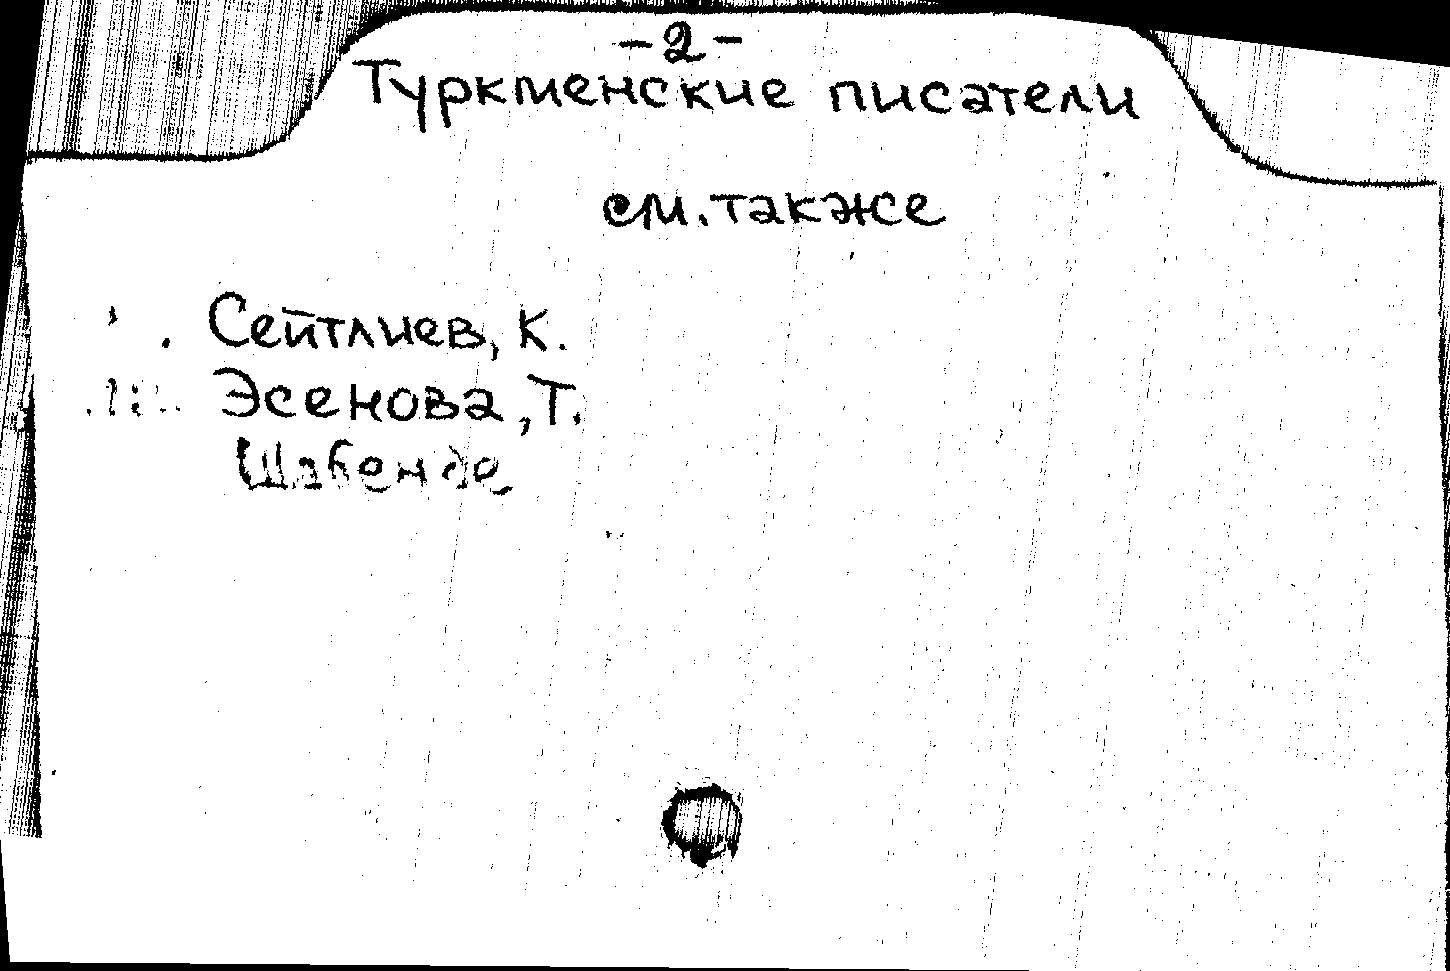 -2-
Туркменские писатели
см. также
Сейтлиев, К.
Эсенова, Т.
Шабенде